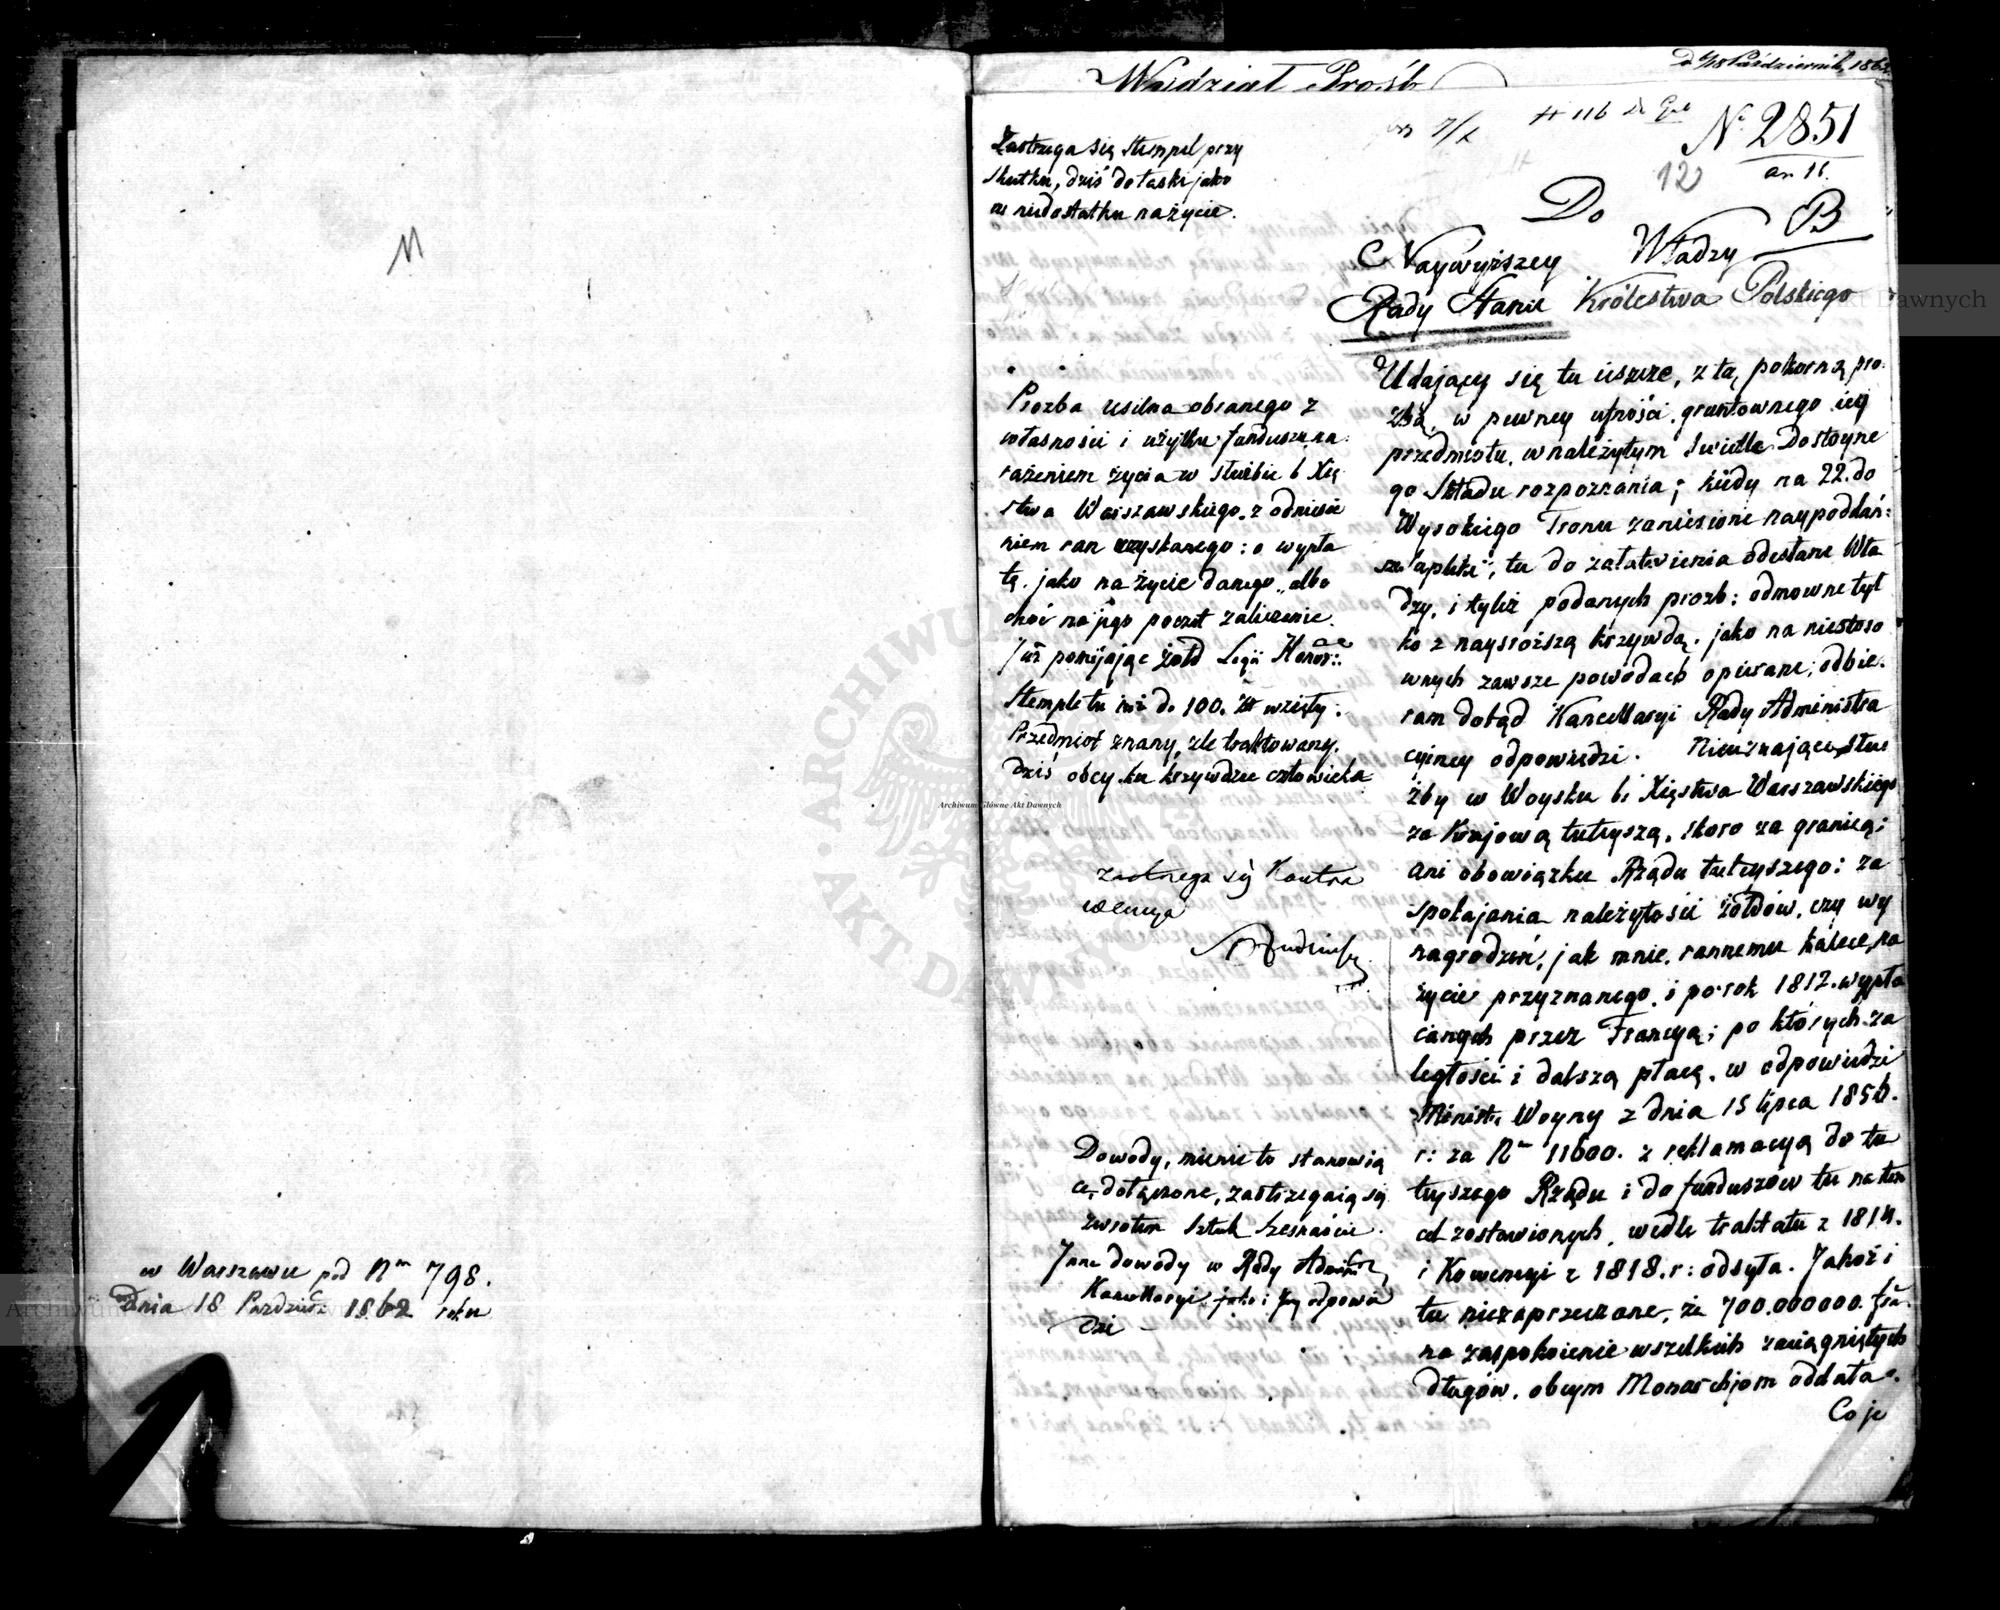 11
w Warszawie pod Nm 798.
Dnia 18 Paździer 1862 roku
Wydział Próśb
D 6/18 Październik 1862
N. 2851
12
B
Zastrzega się stempel przy
skutku, dziś do łaski jako
w niedostatku na życie.
Do
Naywyższey Władzy
Rady Stanu Królestwa Polskiego
Prozba usilna obranego z
własności i użytku funduszu na
rażeniem życia w służbie b. Xię
stwa Warszawskiego, z odniesie
niem ran uzyskanego: o wypła
tę, jako na życie danego, albo
choć na jego poczet zaliczenie.
Już pomijając żołd Legii Honor:
Stemple tu już do 100. Zł wzięty.
Przedmiot znany, źle traktowany.
Dziś obcy ku krzywdzie człowieka
zastrzega się
Dowody, mienie to stanowią
ce, dołączone, zastrzegają się
zwrotem Sztuk szesnaście.
Inne dowody w Rady Admin
Kancellaryi jako i Jey odpowie
dzi —
Udający się tu ieszcze, z tą pokorną pro-
źbą, w pewney ufności, gruntownego iey
przedmiotu, w należytym świetle Dostoyne
go Składu rozpoznania; kiedy na 22. do
Wysokiego Tronu zaniesione naypoddań-
sze apliki, tu do załatwienia odesłane Wła
dzy, i tyleż podanych prozb: odmowne tyl
ko z naysroższą krzywdą, jako na niestoso
wnych zawsze powodach opierane, odbie-
ram dotąd Kancellaryi Rady Administra
cyiney odpowiedzi. Nieuznające słu
żby w Woysku b: Xięstwa Warszawskiego
za Krajową tutejszą, skoro za granicą;
ani obowiązku Rządu tutejszego: za
spokajania należytości żołdów, czy wy
nagrodzeń, jak mnie, rannemu kalece, na
życie przyznanego, i po rok 1812. wypła
canych przez Francyą; po których za
ległości i dalszą płacę, w odpowiedzi
Ministr Woyny z dnia 15 lipca 1856.
r: za Nm 11600. z reklamacyą do tu
tejszego Rządu i do funduszów tu na ten
cel zostawionych, wedle traktatu z 1814.
i Konwencyi z 1818. r: odsyła. Jakoż i
tu niezaprzeczone, że 700.000000. fra.
na zaspokoienie wszelkich zaciągniętych
długów, obcym Monarchjom oddała.
Co je
Archiwum Główne Akt Dawnych
ARCHIWUM
AKT DAWNYCH